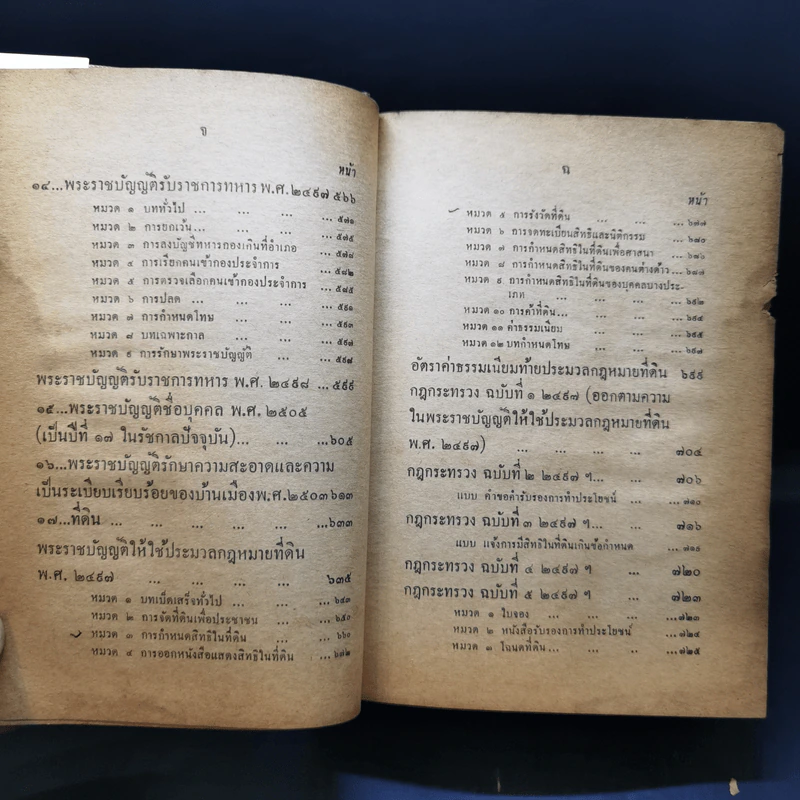 จ
หน้า
๑๔...พระราชบัญญัติรับราชการทหาร พ.ศ. ๒๔๙๗ ๕๖๖
หมวด ๑ บททั่วไป ... ... ... ... ๕๗๑
หมวด ๒ การยกเว้น... ... ... ... ๕๗๕
หมวด ๓ การลงบัญชีทหารกองเกินที่อำเภอ ...๕๗๘
หมวด ๔ การเรียกคนเข้ากองประจำการ ...๕๘๒
หมวด ๕ การตรวจเลือกคนเข้ากองประจำการ ...๕๘๕
หมวด ๖ การปลด ... ... ... ...๕๙๑
หมวด ๗ การกำหนดโทษ ... ... ...๕๙๓
หมวด ๘ บทเฉพาะกาล ... ... ...๕๙๗
หมวด ๙ การรักษาพระราชบัญญัติ ... ...๕๙๘
พระราชบัญญัติรับราชการทหาร พ.ศ. ๒๔๙๘ ...๕๙๙
๑๕...พระราชบัญญัติชื่อบุคคล พ.ศ. ๒๕๐๕
(เป็นปีที่ ๑๗ ในรัชกาลปัจจุบัน)... ... ...๖๐๕
๑๖...พระราชบัญญัติรักษาความสะอาดและความ
เป็นระเบียบเรียบร้อยของบ้านเมืองพ.ศ.๒๕๐๓ ๖๑๓
๑๗...ที่ดิน ... ... ... ... ...๖๓๓
พระราชบัญญัติให้ใช้ประมวลกฎหมายที่ดิน
พ.ศ. ๒๔๙๗ ... ... ... ... ๖๓๕
หมวด ๑ บทเบ็ดเสร็จทั่วไป ... ... ...๖๔๓
หมวด ๒ การจัดที่ดินเพื่อประชาชน ... ...๖๕๐
หมวด ๓ การกำหนดสิทธิในที่ดิน ... ...๖๖๐
หมวด ๔ การออกหนังสือแสดงสิทธิในที่ดิน ...๖๗๒
ฉ
หน้า
หมวด ๕ การรังวัดที่ดิน ... ... ...๖๗๗
หมวด ๖ การจดทะเบียนสิทธิและนิติกรรม ...๖๘๐
หมวด ๗ การกำหนดสิทธิในที่ดินเพื่อศาสนา ...๖๘๖
หมวด ๘ การกำหนดสิทธิในที่ดินของคนต่างด้าว ...๖๘๗
หมวด ๙ การกำหนดสิทธิในที่ดินของบุคคลบางประ-
เภท ... ... ... ...๖๙๒
หมวด ๑๐ การค้าที่ดิน... ... ... ...๖๙๔
หมวด ๑๑ ค่าธรรมเนียม ... ... ...๖๙๕
หมวด ๑๒ บทกำหนดโทษ ... ... ...๖๙๗
อัตราค่าธรรมเนียมท้ายประมวลกฎหมายที่ดิน ๖๙๙
กฎกระทรวง ฉบับที่ ๑ ๒๔๙๗ (ออกตามความ
ในพระราชบัญญัติให้ใช้ประมวลกฎหมายที่ดิน
พ.ศ. ๒๔๙๗) ... ... ... ... ๗๐๔
กฎกระทรวง ฉบับที่ ๒ ๒๔๙๗ ฯ... ... ๗๐๖
แบบ คำขอคำรับรองการทำประโยชน์ ... ...๗๑๐
กฎกระทรวง ฉบับที่ ๓ ๒๔๙๗ ฯ... ... ๗๑๖
แบบ แจ้งการมีสิทธิในที่ดินเกินข้อกำหนด ...๗๑๙
กฎกระทรวง ฉบับที่ ๔ ๒๔๙๗ ฯ ... ๗๒๐
กฎกระทรวง ฉบับที่ ๕ ๒๔๙๗ ฯ ... ๗๒๓
หมวด ๑ ใบจอง ... ... ... ...๗๒๓
หมวด ๒ หนังสือรับรองการทำประโยชน์ ...๗๒๔
หมวด ๓ โฉนดที่ดิน... ... .. ...๗๒๕